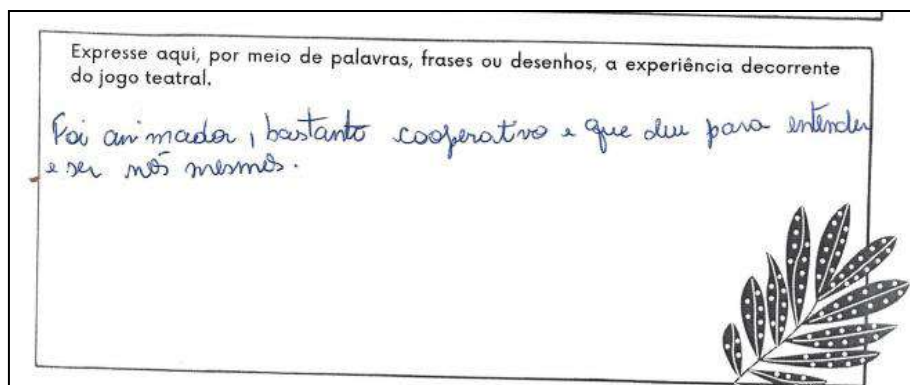 Expresse aqui, por meio de palavras, frases ou desenhos, a experiência decorrente
do jogo teatral.
Foi animador, bastante cooperativo e que deu para entender
e ser nós mesmos.